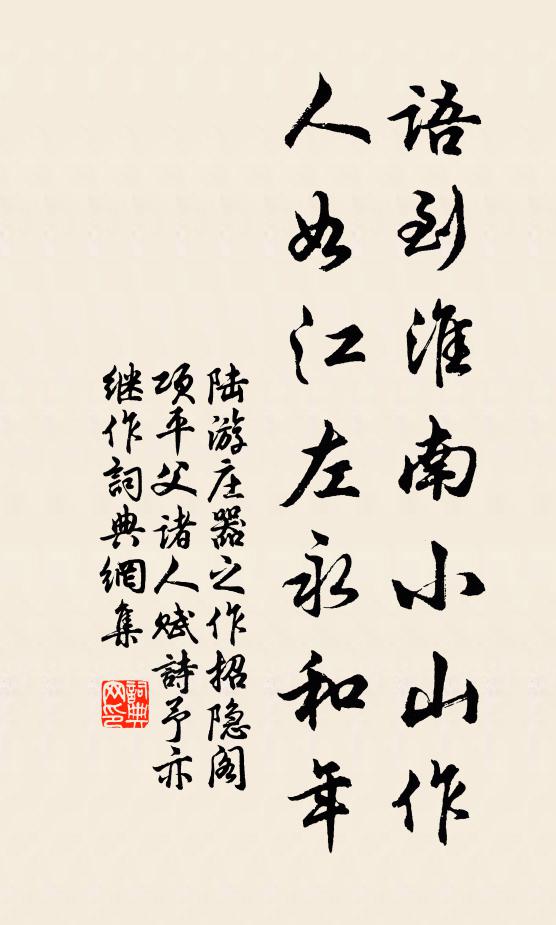 語到淮南小山作
人如江左永和年
陆游庄器之作招隐阁
项平父诸人赋詩予亦
继作詞典網集
詞典
网印